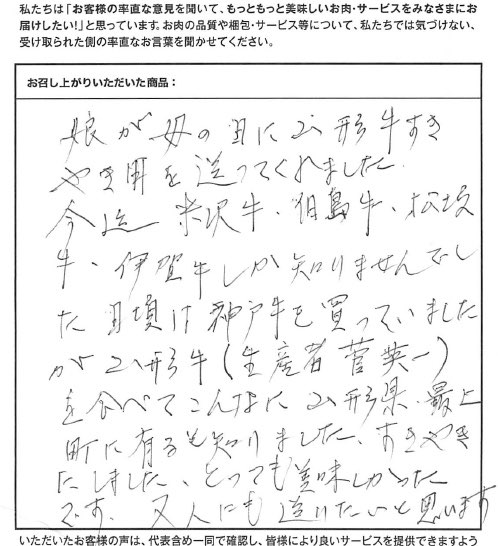 私たちは「お客様の率直な意見を聞いて、もっともっと美味しいお肉・サービスをみなさまにお
届けしたい!」と思っています。お肉の品質や梱包・サービス等について、私たちでは気づけない、
受け取られた側の率直なお言葉を聞かせてください。
お召し上がりいただいた商品：
娘が母の日に山形牛すき
やき用を送ってくれました.
今迄 米沢牛、但島牛、松坂
牛、伊賀牛しか知りませんでし
た 日頃は神戸牛を買っていました
が山形牛(生産者 菅英一)
を食べてこんなに山形県.最上
町に有るも知りました、すきやき
にしました、とっても美味しかった
です、又人にも送りたいと思います
いただいたお客様の声は、代表含め一同で確認し、皆様により良いサービスを提供できますよう